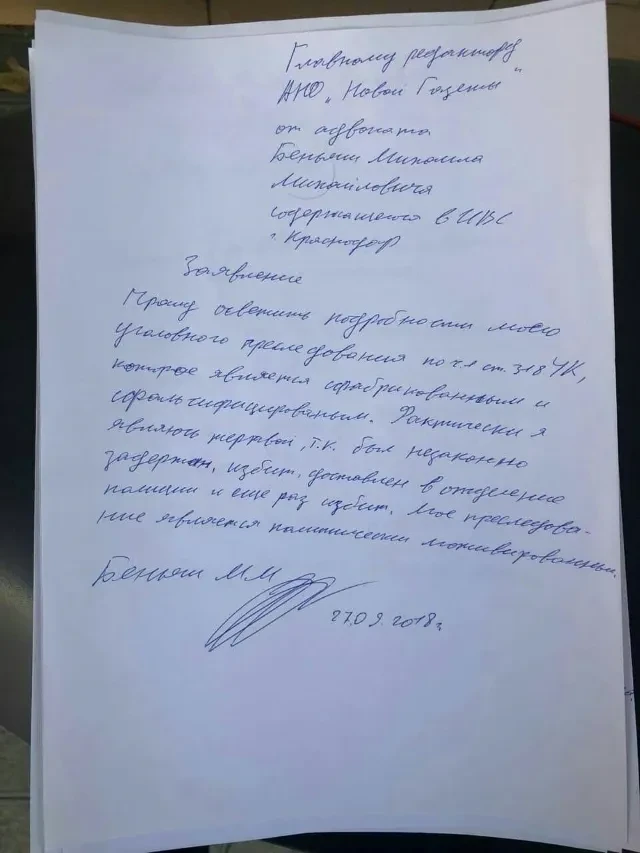 Главному редактору
АНО „Новой Газеты"
от адвоката
Беньяш Михаила
Михайловича
содержащегося в ИВС
г. Краснодар
Заявление
Прошу осветить подробности моего
уголовного преследования по ч.1 ст. 318 УК,
которое является сфабрикованным и
сфальсифицированым. Фактически я
являюсь жертвой, т.к. был незаконно
задержан, избит, доставлен в отделение
полиции и еще раз избит. Мое преследова-
ние является политически мотивированным.
Беньяш М М
27.09.2018г.